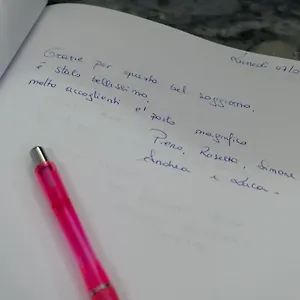 Lunedì 07/0
Grazie per questo bel soggiorno,
è stato bellissimo,
molto accoglienti e posto magnifico
Piero, Rosetta, Simone
Andrea e Luca.